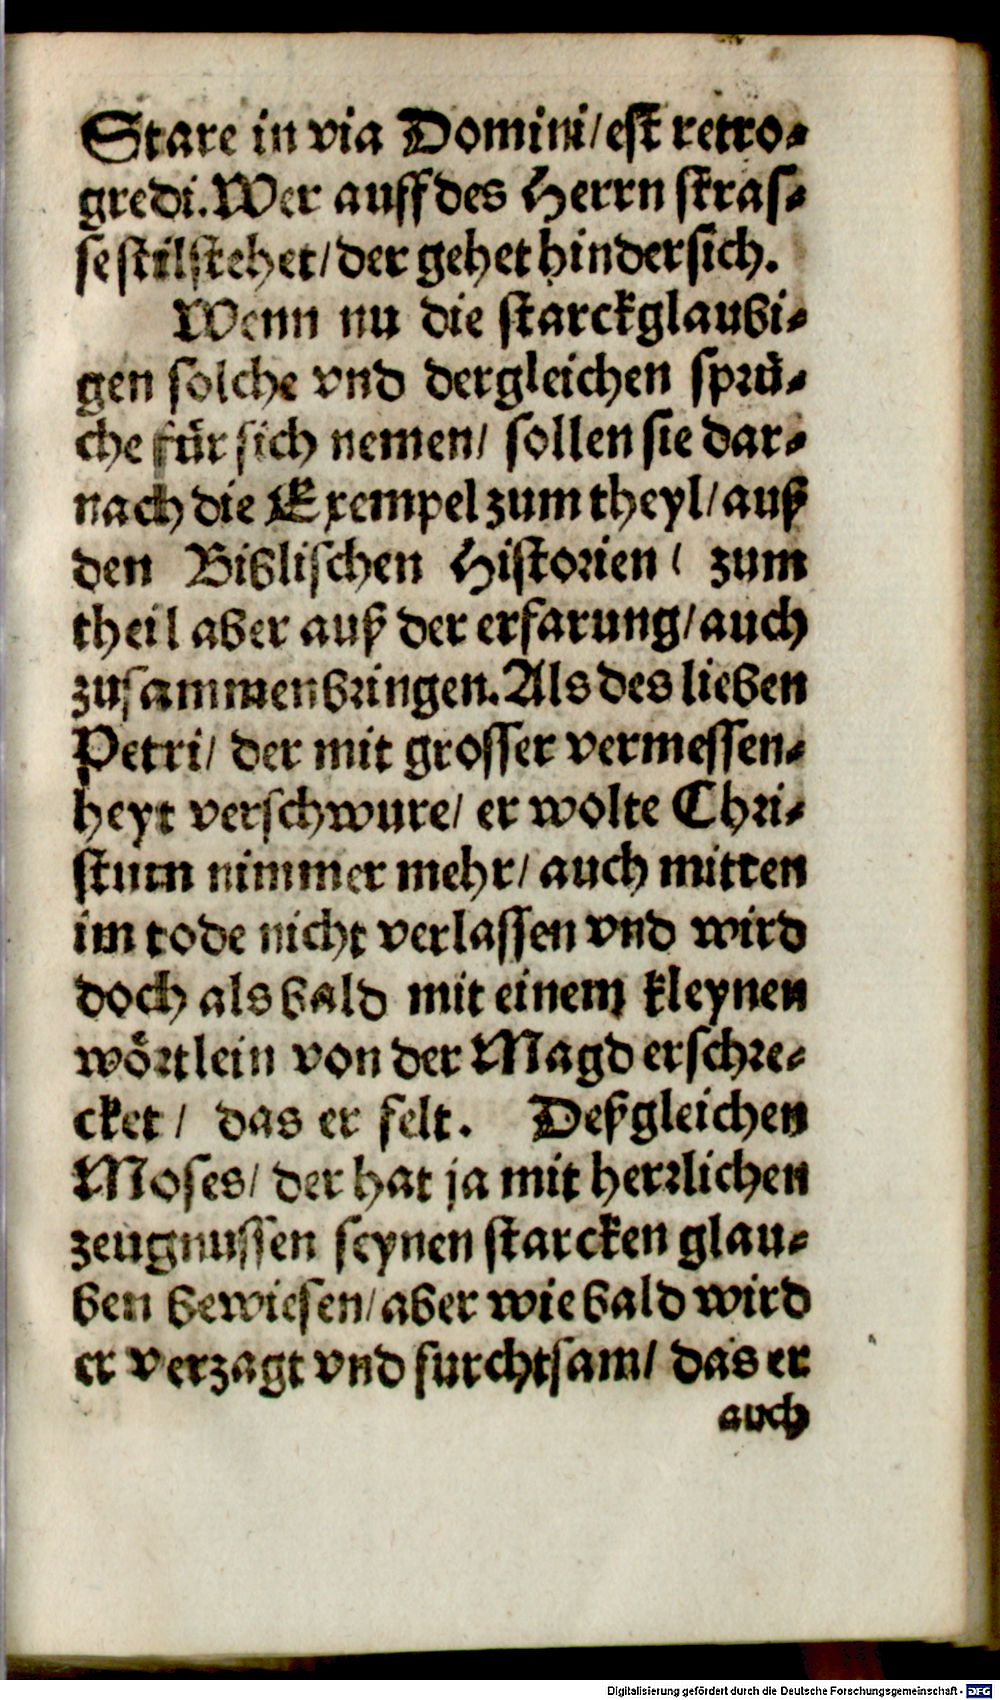 Stare in via Domini/est retro-
gredi. Wer auff des Herrn stras-
se stilstehet/der gehet hindersich.
Wenn nu die starckglaubi-
gen solche vnd dergleichen sprü-
che für sich nemen/ sollen sie dar-
nach die Exempel zum theyl/auß
den Biblischen Historien/ zum
theil aber auß der erfarung/auch
zusammenbringen. Als des lieben
Petri/ der mit grosser vermessen-
heyt verschwure/ er wolte Chri-
stum nimmer mehr/ auch mitten
im tode nicht verlassen vnd wird
doch als bald mit einem kleynen
wörtlein von der Magd erschre-
cket/ das er felt. Deßgleichen
Moses/ der hat ja mit herrlichen
zeugnussen seynen starcken glau-
ben bewiesen/aber wie bald wird
er verzagt vnd furchtsam/ das er
auch
Digitalisierung gefördert durch die Deutsche Forschungsgemeinschaft - DFG